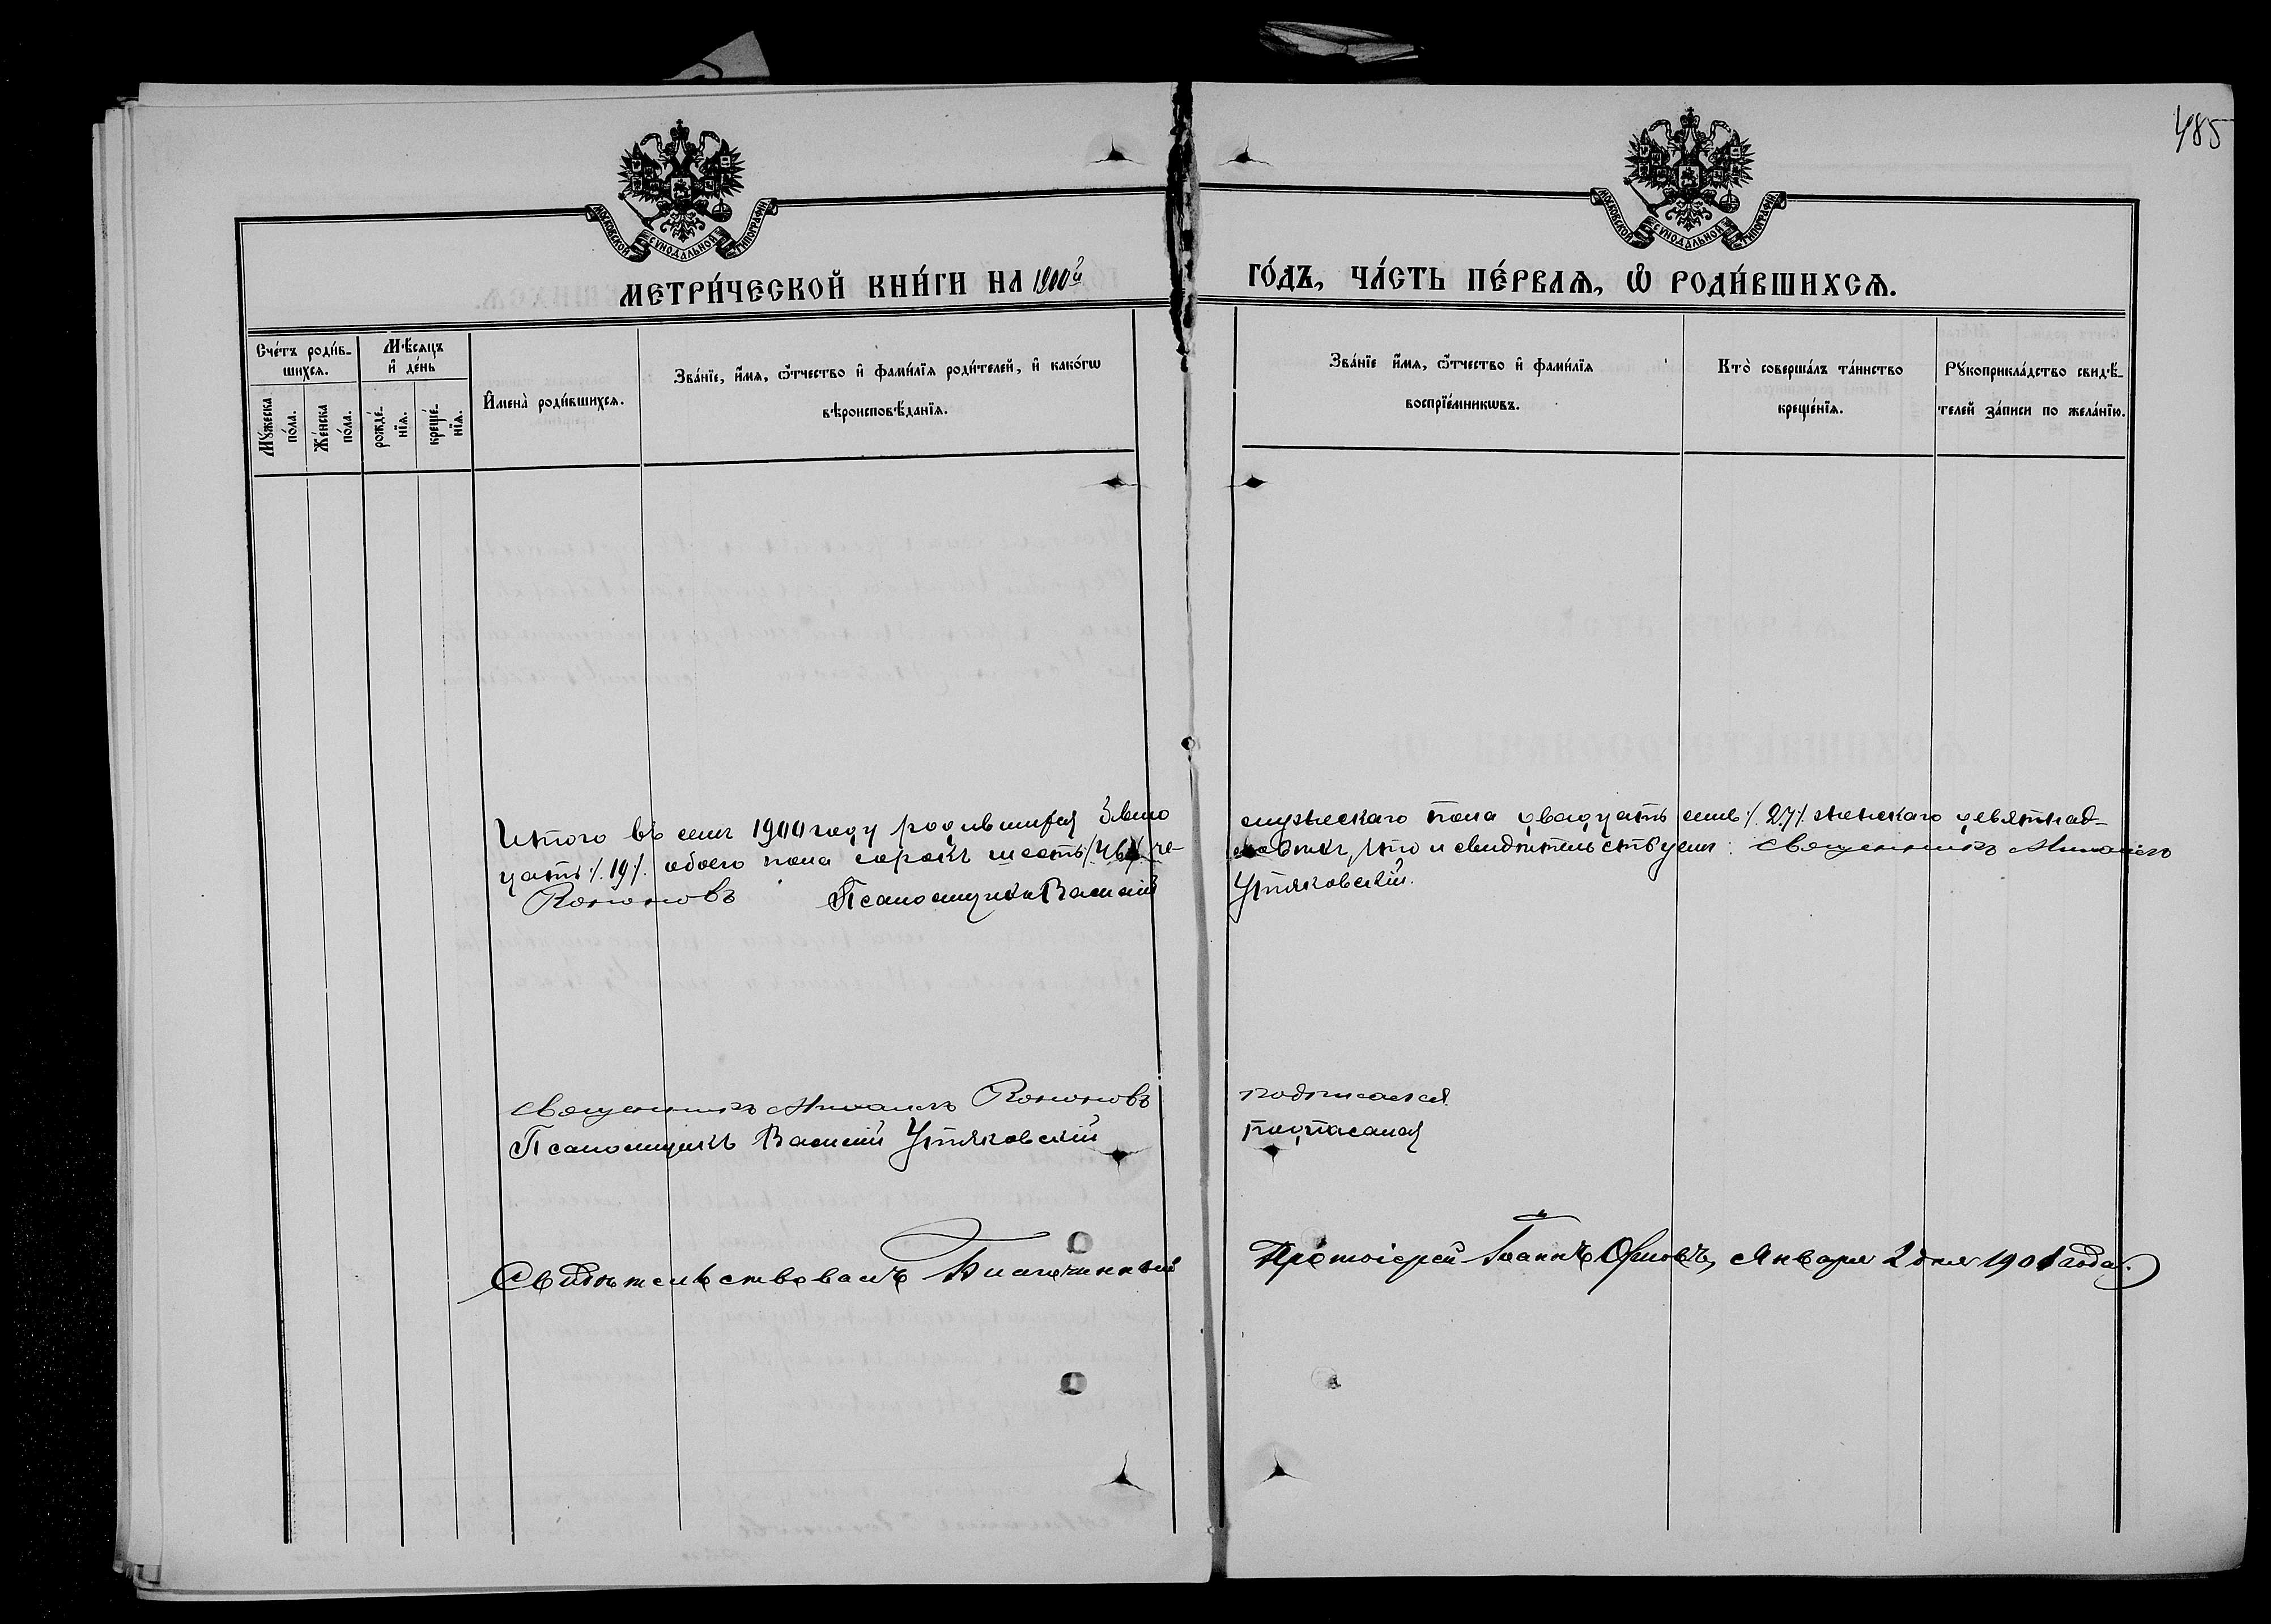 485
МОСКОВСКОЙ СѴНОДАЛЬНОЙ ТИПОГРАФІИ
МОСКОВСКОЙ СѴНОДАЛЬНОЙ ТИПОГРАФІИ
МЕТРИ́ЧЕСКОЙ КНИ́ГИ НА 1900й
ГО́ДЪ, ЧА́СТЬ ПЕ́РВАѦ, Ѽ РОДИ́ВШИХСѦ.
Сче́тъ роди́в-
шихсѧ.
Мѣ́сѧцъ
и҆ де́нь
Мꙋ́жеска
по́ла.
Же́нска
по́ла.
рожде́-
нїѧ.
креще́-
нїѧ.
И҆мена̀ роди́вшихсѧ.
Зва́нїе, и҆́мѧ, ѻ҆́тчество и҆ фами́лїѧ роди́телей, и҆ како́гѡ
вѣроисповѣ́данїѧ.
Зва́нїе и҆́мѧ, ѻ҆́тчество и҆ фами́лїѧ
воспрїе́мникѡвъ.
Кто̀ соверша́лъ та́инство
креще́нїѧ.
Рꙋкоприкла́дство свидѣ́-
телей за́писи по жела́нїю.
Итого въ семъ 1900 году родившихся Звено
мужескаго пола двадцать семь /.27/. женскаго девятнад-
цать /.19/. обоего пола сорокъ шесть /46/ че-
ловѣкъ, что и свидѣтельствуемъ: Священникъ Михаилъ
Кононовъ Псаломщикъ Василій
Утяковскій.
Священникъ Михаилъ Кононовъ
подписался
Псаломщикъ Василій Утяковскій
подписался
Свидѣтельствовалъ Благочинный
Протоіерей Іоаннъ Орловъ, Января 2 дня 1901 года.